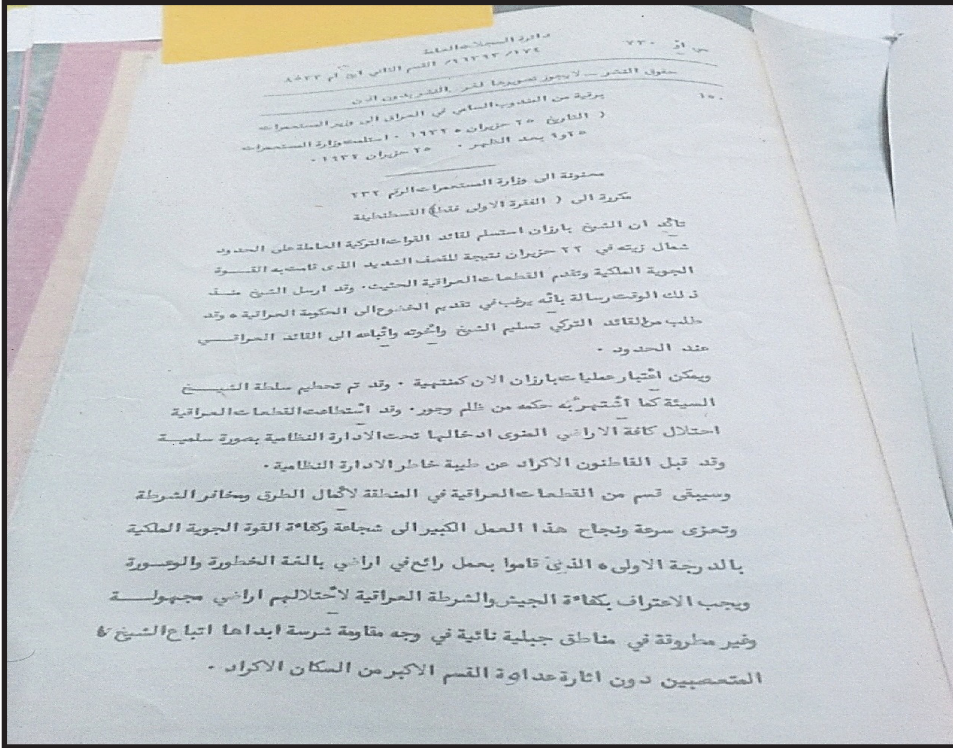 دائرة السجلات العامة
سي او ٧٣٠ / ١٧٤ / ٩٦٢٩٣ / القسم الثاني اين ام ٨٥٢٢
حقوق النشر — لا يجوز تصويرها لغير النشر بدون اذن
١٥٠ برقية من المندوب السامي في العراق الى وزير المستعمرات
( التاريخ ٢٥ حزيران ١٩٣٢ ٠ استلمت وزارة المستعمرات
٦و٢٥ بعد الظهر ٠ ٢٥ حزيران ١٩٣٢ ٠
معنونة الى وزارة المستعمرات الرقم ٢٣٢
مكررة الى ( الفقرة الاولى فقط) القسطنطينة
تأكد ان الشيخ بارزان استسلم لقائد القوات التركية العاملة على الحدود
شمال زيته في ٢٢ حزيران نتيجة للقصف الشديد الذى قامت به القـــوة
الجوية الملكية وتقدم القطعات العراقية الحثيث٠ وقد ارسل الشيخ منـــذ
ذلك الوقت رسالة بانه يرغب في تقديم الخضوع الى الحكومة العراقية ٠ وقد
طلب من القائد التركي تسليم الشيخ واخوته واتباعه الى القائد العراقـــي
عند الحدود ٠
ويمكن اعتبار عمليات بارزان الان كمنتهية ٠ وقد تم تحطيم سلطة الشيـــخ
السيئة كما اشتهر به حكمه من ظلم وجور٠ وقد استطاعت القطعات العراقية
احتلال كافة الاراضي المنوى ادخالها تحت الادارة النظامية بصورة سلميـــة
وقد قبل القاطنون الاكراد عن طيبة خاطر الادارة النظامية ٠
وسيبقى قسم من القطعات العراقية في المنطقة لاكمال الطرق ومخافر الشرطة
وتعزى سرعة ونجاح هذا العمل الكبير الى شجاعة وكفاءة القوة الجوية الملكية
بالدرجة الاولى ٠ الذين قاموا بعمل رائع في اراضي بالغة الخطورة والوعورة
ويجب الاعتراف بكفاءة الجيش والشرطة العراقية لاحتلالهم اراضي مجهولـــة
وغير مطروقة في مناطق جبلية نائية في وجه مقاومة شرسة ابداها اتباع الشيخ
المتعصبين دون اثارة عداوة القسم الاكبر من السكان الاكراد ٠